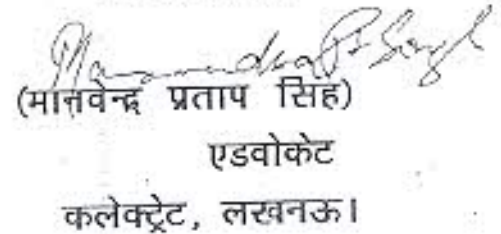 Manavendra P. Singh
(मानवेन्द्र प्रताप सिंह)
एडवोकेट
कलेक्ट्रेट, लखनऊ।